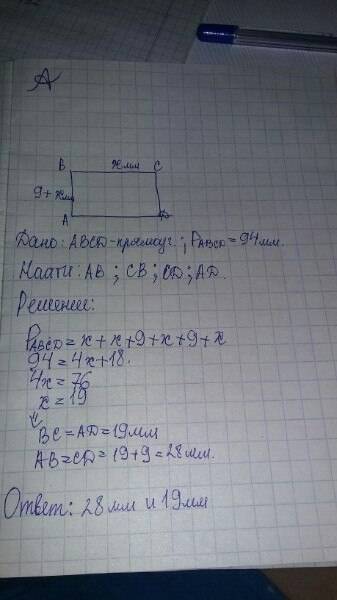 A
B x мм C
9+xмм
A D
Дано: ABCD-прямоуг.; PABCD=94мм.
Наати: AB; CB; CD; AD.
Решение:
PABCD = x+x+9+x+9+x
94=4x+18.
4x=76
x=19
⇓
BC=AD=19мм
AB=CD=19+9=28мм.
Ответ: 28мм и 19мм